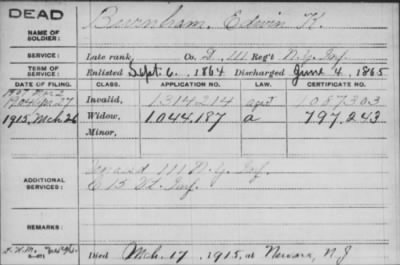 DEAD
NAME OF SOLDIER: Burnham, Edwin K.
SERVICE: Late rank, Co. D, 111 Reg't N.Y. Inf.
TERM OF SERVICE: Enlisted Sept. 6, 1864 Discharged June 4, 1865
DATE OF FILING. CLASS. APPLICATION NO. LAW. CERTIFICATE NO.
1904 Apr 27 Invalid, 1314214 1087303
1915, Mch 26 Widow, 1044187 a 797.243
Minor,
ADDITIONAL SERVICES: 111 N.Y. Inf.
E 15 Inf.
REMARKS:
Died Mch. 17, 1915, at Newark, N.J.